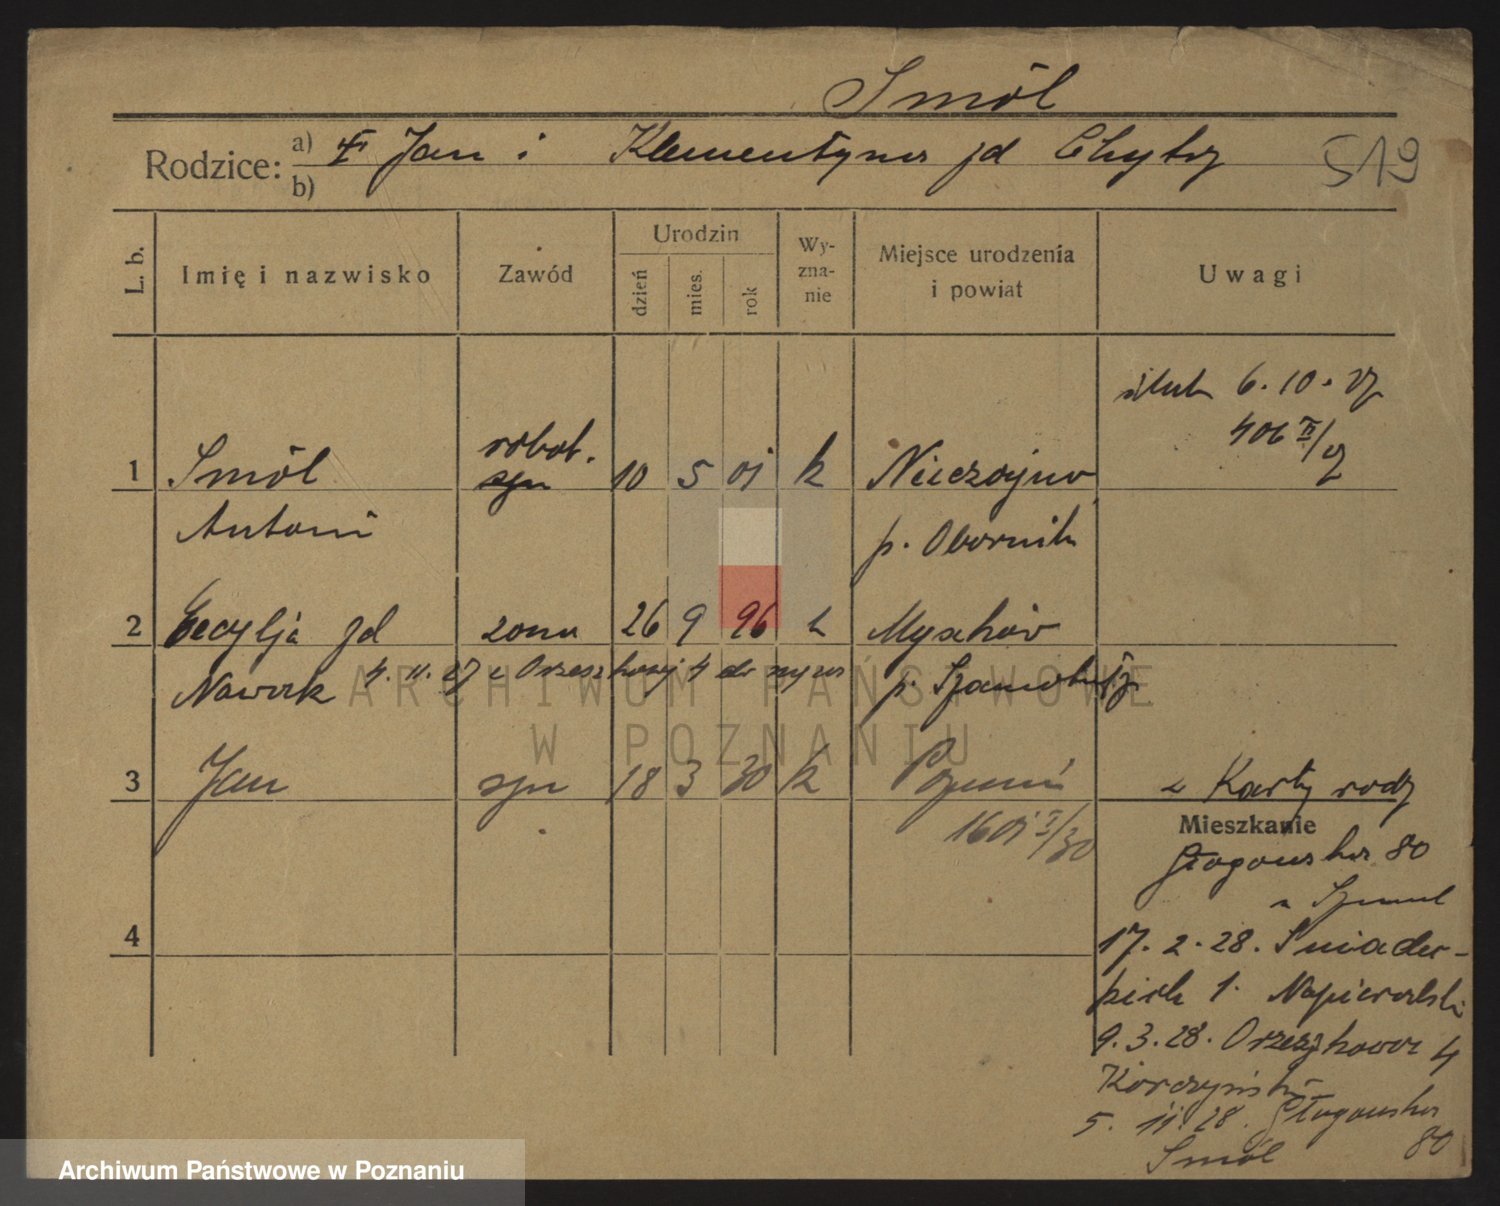 Smól
Rodzice: a) Jan i Klementyna zd Chytry
b)
519
L. b.
Imię i nazwisko
Zawód
Urodzin
dzień
mies.
rok
Wy-
zna-
nie
Miejsce urodzenia
i powiat
Uwagi
ślub 6.10.27
406 II/27
1 Smól robot. 10 5 01 k Nieczajna
Antoni p. Obornik
2 Cecylja zd żona 26 9 96 k
Nowak 4.11.27 z Orzeszkowej 4 do p. Szamotuły
3 Jan syn 18 3 30 k Poznań
1601 I/30
z Karty rodz
Mieszkanie
Głogowska 80
17.2.28. Śniadec-
kich 1. Napieralski
9.3.28. Orzeszkowa 4
Korczyński
5.11.28. Głogowska
Smól 80
4
ARCHIWUM PAŃSTWOWE
W POZNANIU
Archiwum Państwowe w Poznaniu